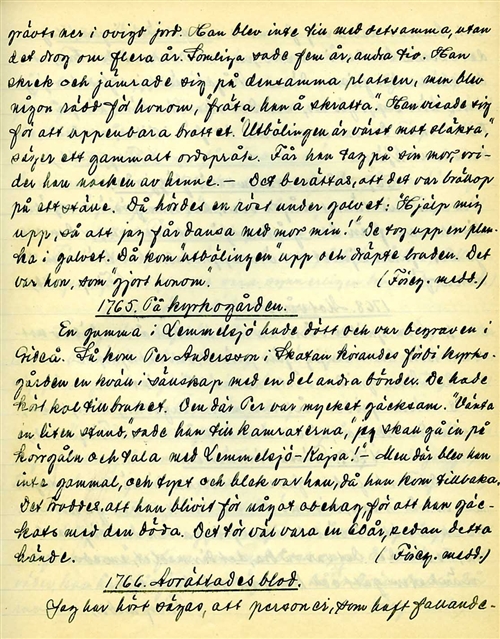 grävts ner i ovigd jord. Han blev inte till med detsamma, utan
det drog om flera år. Somliga sade fem år, andra tio. Han
skrek och jämrade sig på densamma platsen, men blev
någon rädd för honom, "fräta han å skratta." Han visade sig
för att uppenbara brottet. "Utbölingen är värst mot släkta,"
säger ett gammalt ordspråk. Får han tag på sin mor, vri-
der han nacken av henne. — Det berättas, att det var bröllop
på ett ställe. Då hördes en röst under golvet: "Hjälp mig
upp, så att jag får dansa med mor min!" De tog upp en plan-
ka i golvet. Då kom "utbölingen" upp och dräpte bruden. Det
var hon, som "gjort honom." (Föreg. medd.)
1765. På kyrkogården.
En gumma i Lemmelsjö hade dött och var begraven i
Gideå. Så kom Per Andersson i Skatan körandes förbi kyrko-
gården en kväll i sällskap med en del andra bönder. De hade
kört kol till bruket. Den där Per var mycket gäcksam. "Vänta
en liten stund," sade han till kamraterna, "jag skall gå in på
körrgåln och tala med Lemmelsjö-Kajsa! — Men där blev han
inte gammal, och tyst och blek var han, då han kom tillbaka.
Det troddes, att han blivit för något obehag, för att han gäc-
kats med den döda. Det tör väl vara en 60 år, sedan detta
hände. (Föreg. medd.)
1766. Avrättades blod.
Jag har hört sägas, att personer, som haft fallande-